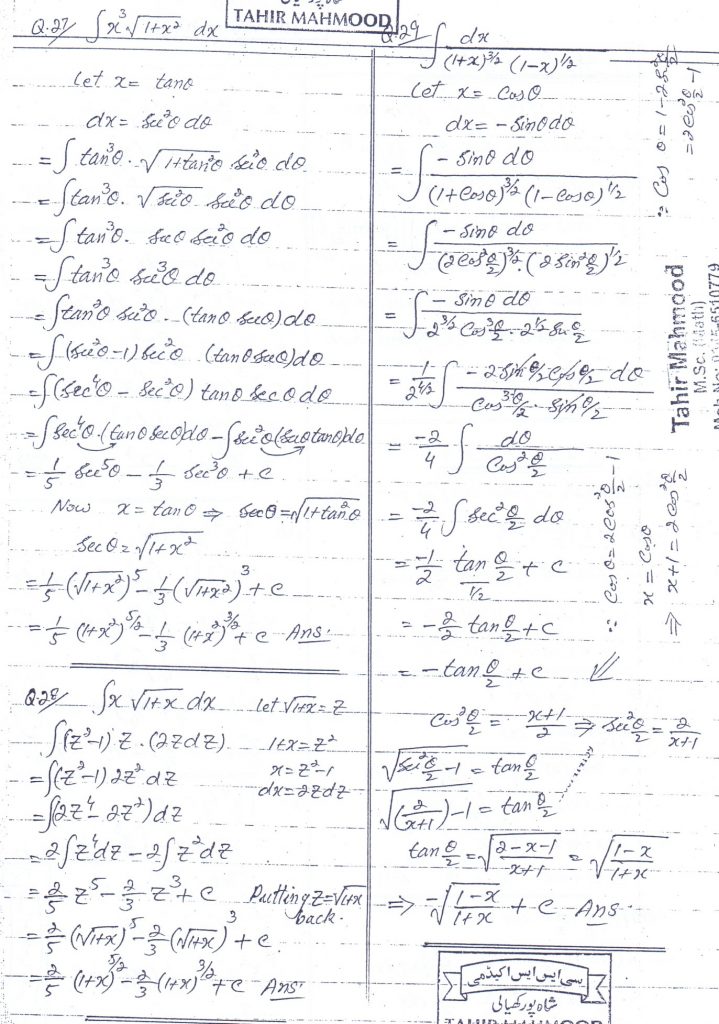 TAHIR MAHMOOD
Q.27/ ∫x³√(1+x²) dx
Let x = tanθ
dx = sec²θ dθ
= ∫tan³θ · √(1+tan²θ) sec²θ dθ
= ∫tan³θ · √(sec²θ) sec²θ dθ
= ∫tan³θ · secθ sec²θ dθ
= ∫tan³θ sec³θ dθ
= ∫tan²θ sec²θ · (tanθ secθ)dθ
= ∫(sec²θ-1) sec²θ (tanθ secθ)dθ
= ∫(sec⁴θ - sec²θ) tanθ secθ dθ
= ∫sec⁴θ·(tanθ secθ)dθ - ∫sec²θ(secθ tanθ)dθ
= 1/5 sec⁵θ - 1/3 sec³θ + c
Now x = tanθ ⇒ secθ = √(1+tan²θ)
secθ = √(1+x²)
= 1/5 (√(1+x²))⁵ - 1/3 (√(1+x²))³ + c
= 1/5 (1+x²)^5/2 - 1/3 (1+x²)^3/2 + c Ans·
Q.28/ ∫x √(1+x) dx let √(1+x) = z
∫(z²-1) z · (2zdz) 1+x = z²
= ∫(z²-1) 2z² dz x = z²-1
dx = 2zdz
= ∫(2z⁴ - 2z²) dz
= 2∫z⁴dz - 2∫z²dz
= 2/5 z⁵ - 2/3 z³ + c Putting z = √(1+x)
back.
= 2/5 (√(1+x))⁵ - 2/3 (√(1+x))³ + c
= 2/5 (1+x)^5/2 - 2/3 (1+x)^3/2 + c Ans·
Q.29 ∫ dx / (1+x)^3/2 (1-x)^1/2
Let x = cosθ
dx = -sinθ dθ
= ∫ -sinθ dθ / (1+cosθ)^3/2 (1-cosθ)^1/2
= ∫ -sinθ dθ / (2cos²θ/2)^3/2 · (2sin²θ/2)^1/2
= ∫ -sinθ dθ / 2^3/2 cos³θ/2 · 2^1/2 sinθ/2
= 1/2^4/2 ∫ -2sinθ/2 cosθ/2 dθ / cos³θ/2 · sinθ/2
= -2/4 ∫ dθ / cos²θ/2
= -2/4 ∫ sec²θ/2 dθ
= -1/2 tanθ/2 / 1/2 + c
= -2/2 tanθ/2 + c
= -tanθ/2 + c
cos²θ/2 = x+1/2 ⇒ sec²θ/2 = 2/x+1
√(sec²θ/2 - 1) = tanθ/2
√((2/x+1) - 1) = tanθ/2
tanθ/2 = √(2-x-1/x+1) = √(1-x/1+x)
⇒ -√(1-x/1+x) + c Ans·
∵ cosθ = 1-2sin²θ/2
= 2cos²θ/2 - 1
Tahir Mahmood
M.Sc. (Math)
∵ cosθ = 2cos²θ/2 - 1
x = cosθ
⇒ x+1 = 2cos²θ/2
سی ایس ایس اکیڈمی
شاہ پور کھیالی
TAHIR MAHMOOD